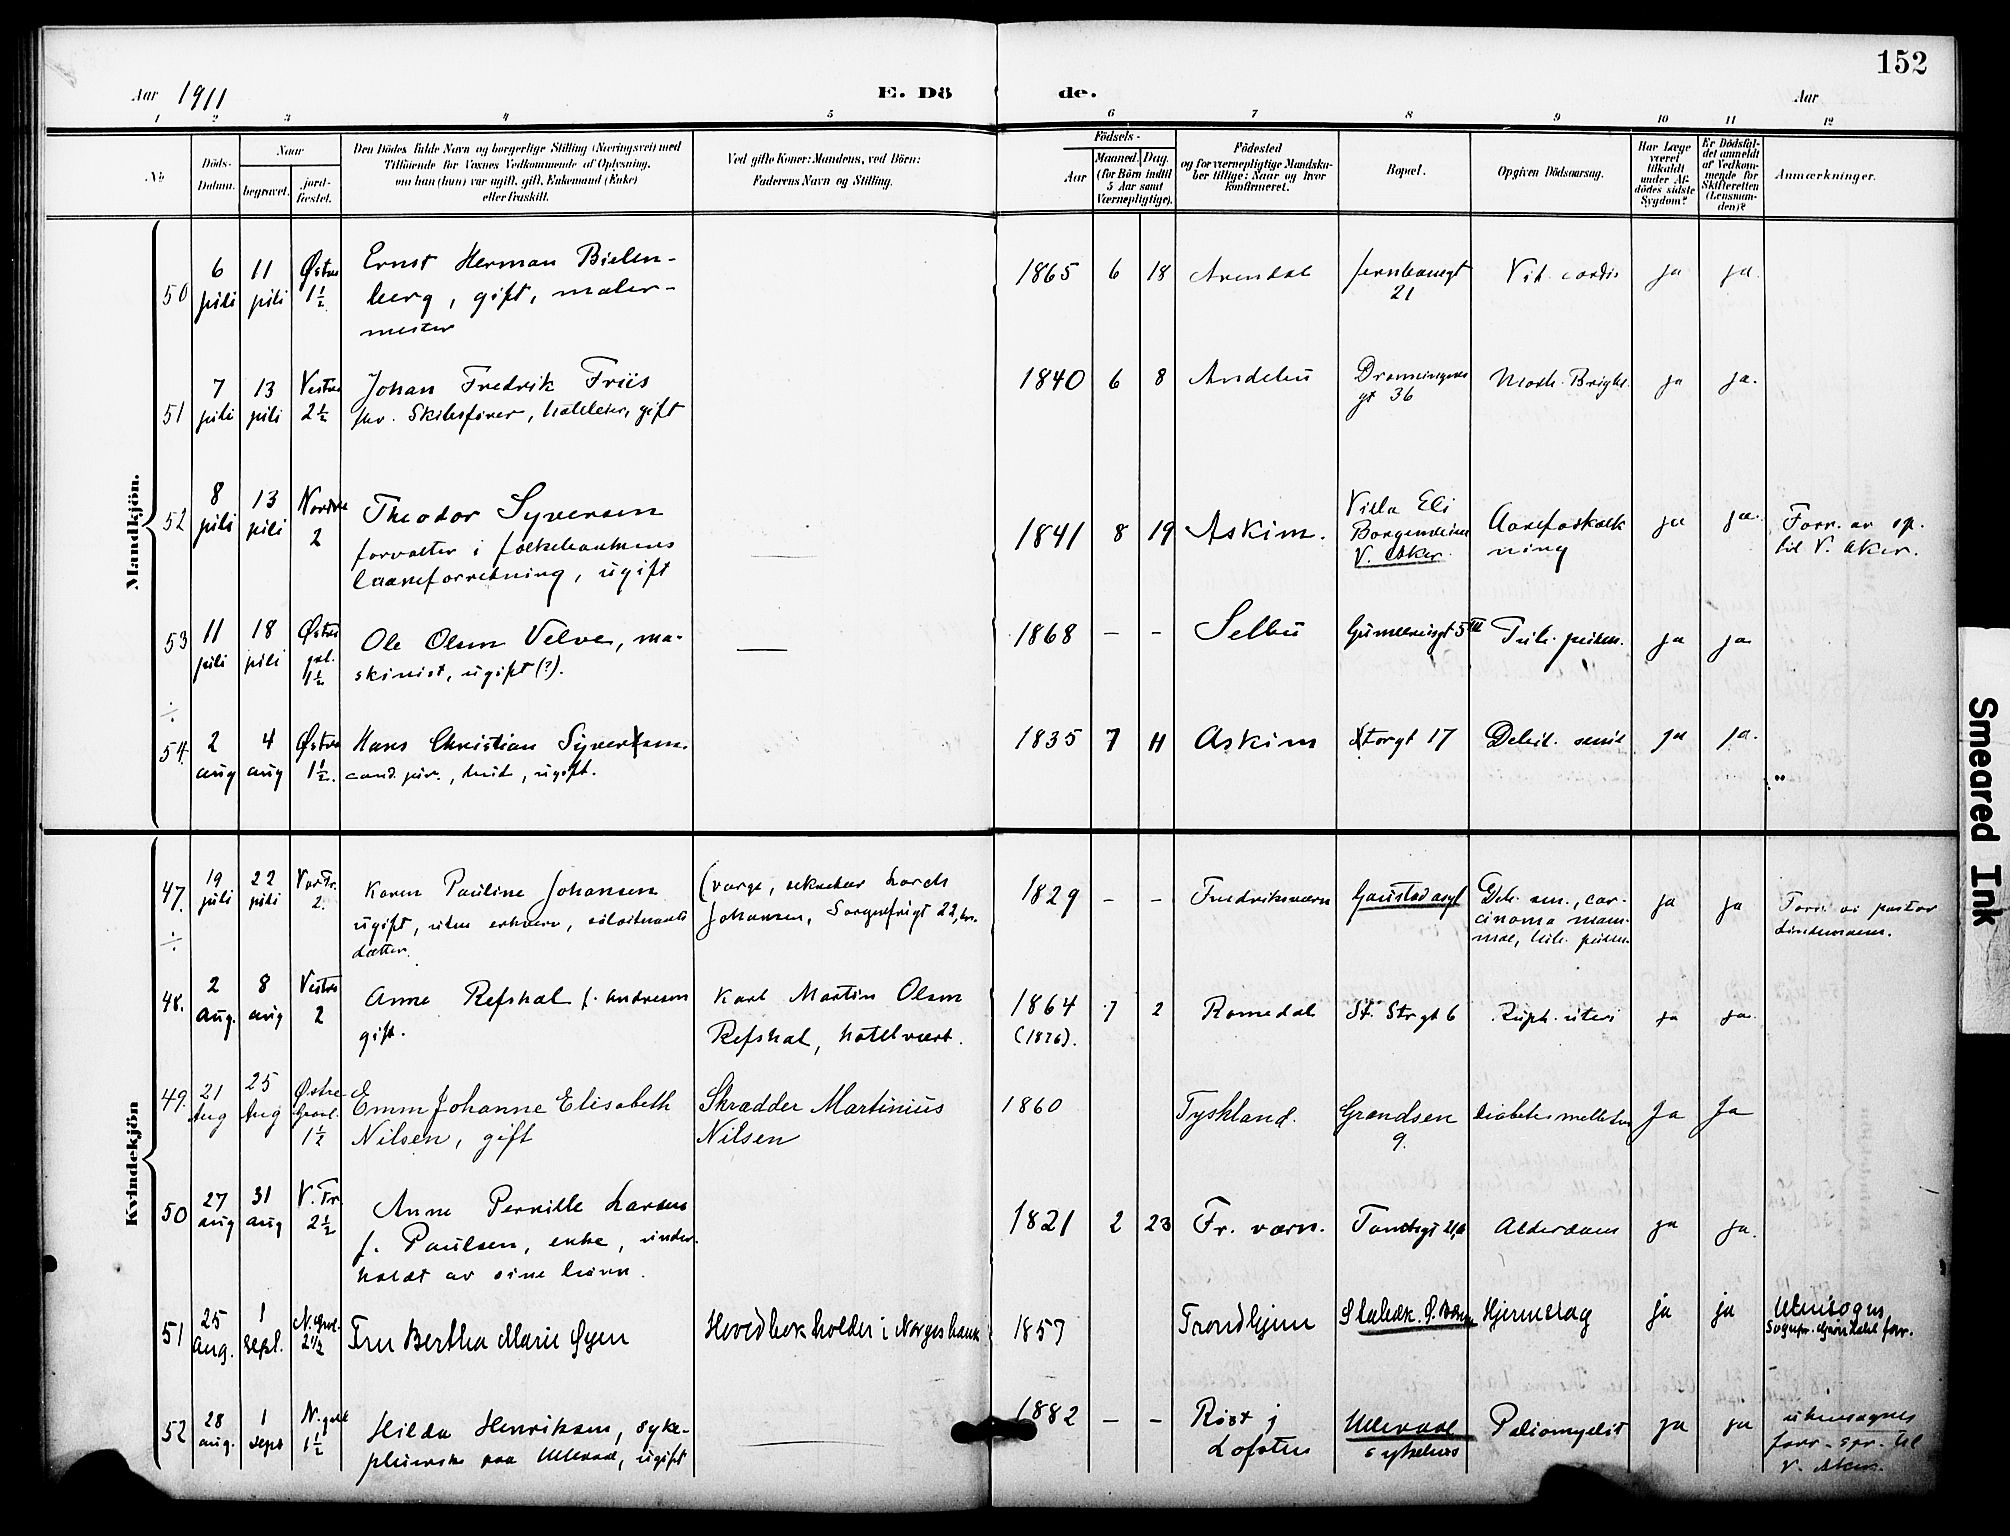 152
Aar 1911
E. Dö de.
Aar
1 2 3 4 5 6 7 8 9 10 11 12
No
Döds-Datum.
Naar
begravet.
jord-fæstet.
Den Dödes fulde Navn og borgerlige Stilling (Næringsvei) med
Tilföiende for Voxnes Vedkommende af Oplysning,
om han (hun) var ugift, gift, Enkemand (Enke)
eller fraskilt.
Ved gifte Koner: Mandens, ved Börn:
Faderens Navn og Stilling.
Födsels-
Aar
Maaned. Dag.
(for Börn indtil
5 Aar samt
Værnepligtige).
Födested
og for værnepligtige Mandska-
ber tillige: Naar og hvor
konfirmeret.
Bopæl.
Opgiven Dödsaarsag.
Har Læge
været
tilkaldt
under Af-
dödes sidste
Sygdom?
Er Dödsfal-
det anmeldt
af Vedkom-
mende for
Skifteretten
(Lensman-
den)?
Anmærkninger.
Mandkjön.
50 6 juli 11 juli Østre 1½ Ernst Herman Bielen-
berg, gift, maler-
mester
1865 6 18 Arendal Jernbanegt 21 Vit. cordis ja ja.
51 7 juli 13 juli Vestre 2½ Johan Fredrik Friis
fhv. Skibsfører, hoteleier, gift
1840 6 8 Andebu Dronningens gt 36 Morb. Bright. ja ja.
52 8 juli 13 juli Nordre 2 Theodor Syversen
forvalter i folkebankens
laaneforretning, ugift
1841 8 19 Askim. Villa Eli V. Aker. Aareforkalk
ning ja ja. Forr. av sp.
til V. Aker.
53 11 juli 18 juli Østre 1½ Ole Olsen Velve, ma-
skinist, ugift (?).
1868 - - Selbu 5 III Tub. pulm. ja ja
54. 2 aug 4 aug Østre 1½. Hans Christian Syvertsen.
cand. jur., ugift.
1835 7 11 Askim Storgt 17 Debil. senil ja ja.
Kvindekjön
47. 19 juli 22 juli Vor Fr. 2. Karen Pauline Johansen
ugift, uten erhverv,
datter.
(værge, sekretær Lorch
Johansen, Sorgenfrigt 22,
1829 - - Fredriksværn Gaustad asyl Deb. sen., car-
cinoma mam-
mae, tub. pulm. ja ja Forr. av pastor
Lindemann.
48. 2 aug. 8 aug Vestre 2 Anne Refshal f. Andresen
gift.
Karl Martin Olsen
Refshal, hotelvært.
1864 (1876). 7 2 Romedal St. Strgt 6 Rupt. uteri ja ja.
49. 21 Aug 25 Aug Østre Gravl. 1½ Emm Johanne Elisabeth
Nilsen, gift
Skrædder Martinius
Nilsen
1860 Tyskland. Grændsen 9. diabetes mellitus Ja Ja
50 27 aug 31 aug V. Fr. 2½ Anne Pernille Larsen
f. Paulsen, enke, under-
holdt av sine børn.
1821 2 23 Fr. værn. Alderdom ja ja.
51 25 Aug. 1 sept. 2½ Fru Bertha Marie Øyen
Hovedbokholder i Norges bank
1857 Trondhjem Hjerneslag ja ja Utensogns
52 28 aug. 1 sept 1½ Hilda Henriksen, syke-
pleierske paa Ullevaal, ugift
1882 - - Røst i
Lofoten Ullevaal
sykehus Poliomyelit ja ja utensognes
forr. spr. til
V. Aker.
Smeared Ink